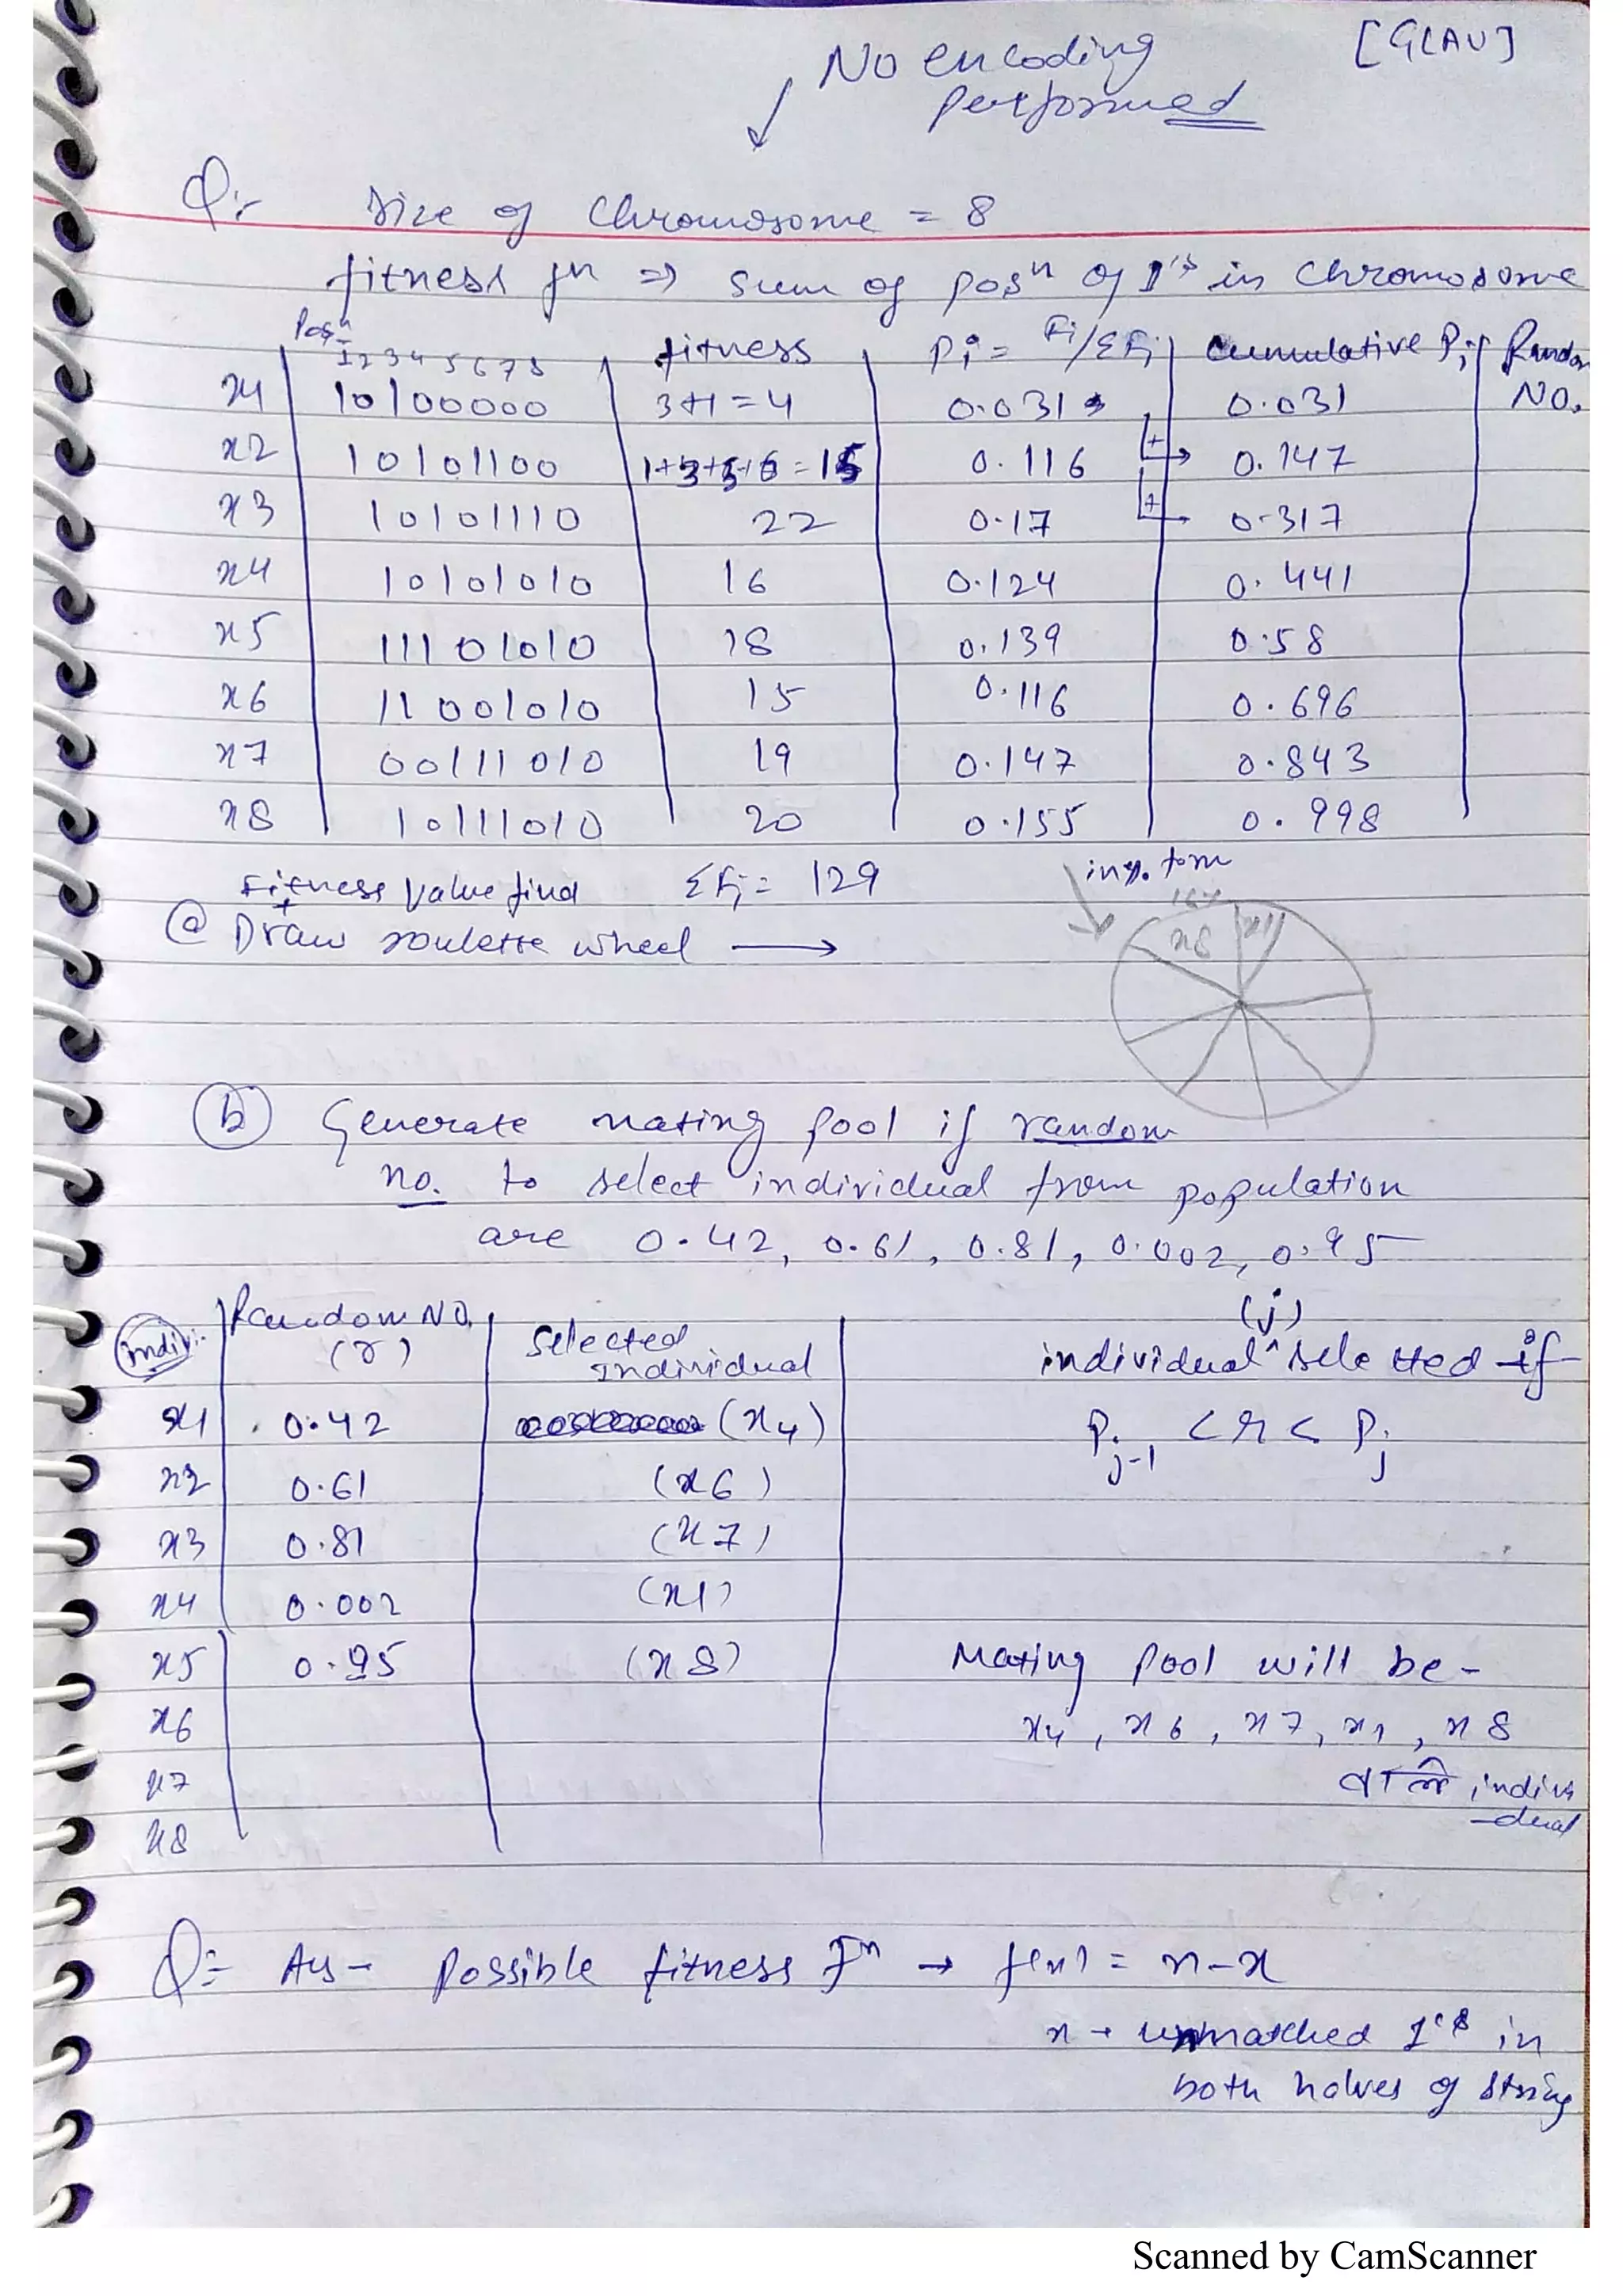 No encoding [GLAU]
performed
Q:- Size of Chromosome = 8
fitness fn => Sum of posn of 1's in Chromosome
Posn 1 2 3 4 5 6 7 8 fitness Pi = Fi/ΣFj Cumulative Pi Random No.
x1 10100000 3+1=4 0.031 0.031
x2 10101100 1+3+5+6=15 0.116 [+] → 0.147
x3 10101110 22 0.17 [+] → 0.317
x4 10101010 16 0.124 0.441
x5 11101010 18 0.139 0.58
x6 11001010 15 0.116 0.696
x7 00111010 19 0.147 0.843
x8 10111010 20 0.155 0.998
Fitness Value find ΣFj = 129
+
(a) Draw roulette wheel →
16%
x8 x1
(b) Generate mating pool if random
no. to select individual from population
are 0.42, 0.61, 0.81, 0.002, 0.95
Indivi. Random NO. (r) Selected Individual individual (j) selected if
x1 0.42 (x4) Pj-1 < r < Pj
x2 0.61 (x6)
x3 0.81 (x7)
x4 0.002 (x1)
x5 0.95 (x8) Mating Pool will be -
x6 x4, x6, x7, x1, x8
x7 individual
x8
Q:- Aus - Possible fitness Fn → f(x) = n-x
x → unmatched 1's in
both halves of string
Scanned by CamScanner